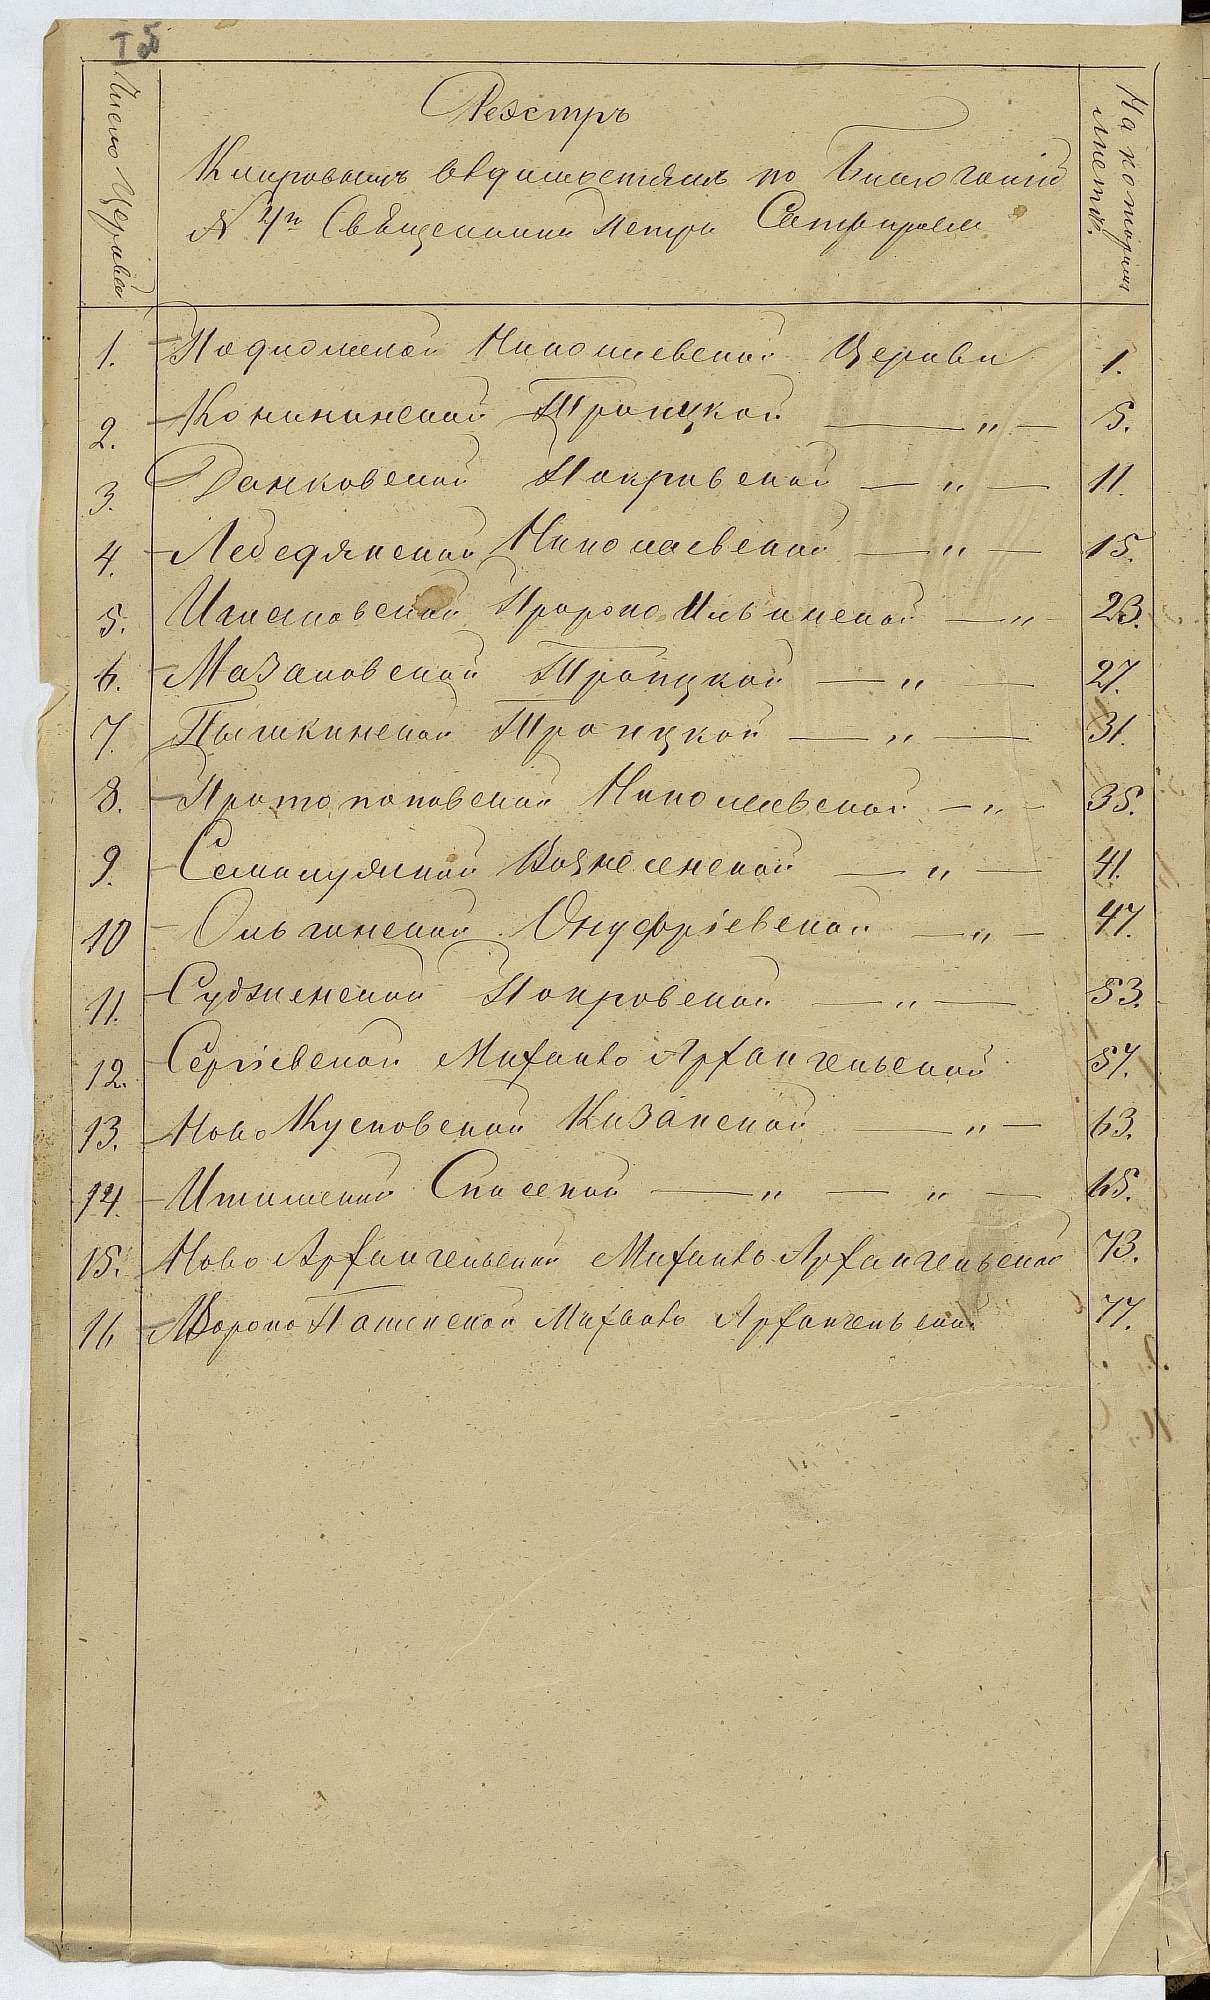 Число Церквей
Реэстръ
На которомъ листѣ.
Клировымъ вѣдомостямъ по Благочинію
№ 4го Священника Петра
1. Подломской Николаевской Церкви 1.
2. Конининской Троицкой — „ — 5.
3. Данковской Покровской — „ — 11.
4. Лебедянской Николаевской — „ — 15.
5. Пророко Ильинской — „ 23.
6. Мазаловской Троицкой — „ — 27.
7. Пышкинской Троицкой — „ — 31.
8. Протопоповской Николаевской — „ — 35.
9. Семилужной Вознесенской — „ — 41.
10 Ольгинской Онуфріевской — „ — 47.
11. Судженской Покровской — „ — 53.
12. Сергіевской Михаило Архангельской 57.
13. Ново Кусковской Казанской — „ — 63.
14. Ишимской Спасской — „ — „ — 65.
15. Ново Архангельской Михаило Архангельской 73.
16. Вороно Пашенской Михаило Архангельской 77.